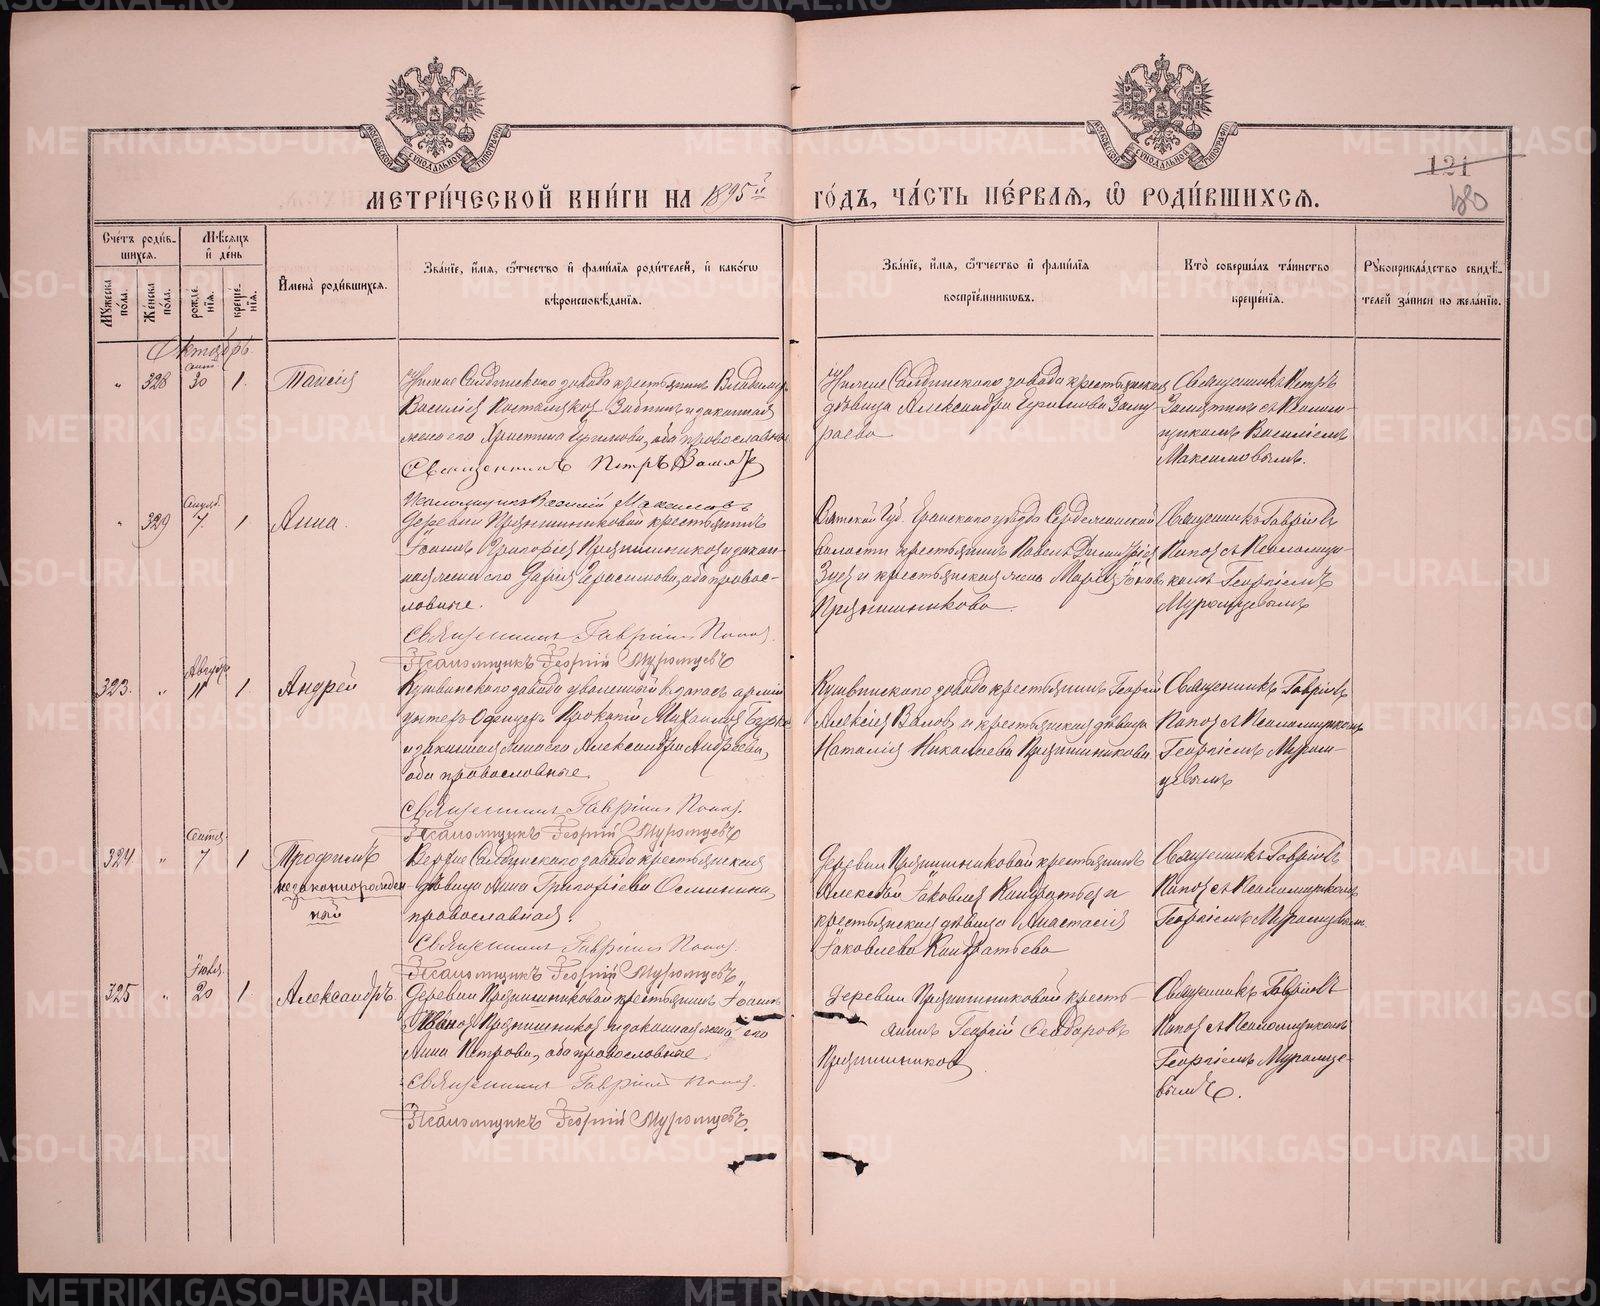 МОСКОВСКОЙ СУНОДАЛЬНОЙ ТИПОГРАФІИ
МОСКОВСКОЙ СУНОДАЛЬНОЙ ТИПОГРАФІИ
121
МЕТРИ́ЧЕСКОЙ КНИ́ГИ НА 1895й ГО́ДЪ, ЧА́СТЬ ПЕ́РВАЯ, Ѡ РОДИ́ВШИХСЯ.
Сче́тъ роди́в-
шихся.
Мꙋжеска по́ла.
Же́нска по́ла.
Мѣ́сяцъ и҆ де́нь
рожде́нїя.
креще́нїя.
И҆мена̀ роди́вшихся.
Зва́нїе, и҆́мя, ѻ҆́тчество и҆ фами́лїя роди́телей, и҆ како́гѡ
вѣроисповѣ́данїя.
Зва́нїе, и҆́мя, ѻ҆́тчество и҆ фами́лїя
воспрїе́мниковъ.
Кто̀ соверша́лъ та́инство
креще́нїя.
Рꙋкоприкла́дство свидѣ́-
телей за́писи по жела́нїю.
Октябрь
" 328 Сент. 30 1. Таисія
Нижне Салдинскаго завода крестьянинъ Владимиръ
Василіев и законная
жена его Христина, оба православные
Священникъ Петръ
Псаломщикъ Василій Максимовъ
Нижне Салдинскаго завода крестьянская
дѣвица Александра
Священникъ Петръ
Замятинъ съ Псалом-
щикомъ Василіемъ
Максимовымъ.
" 329 7 1 Анна.
Деревни Прянишниковой крестьянинъ
Іоаннъ Григорiевъ Прянишниковъ и закон-
ная жена его Дарія Герасимова, оба правос-
лавные.
Священникъ Гавріилъ Поповъ.
Псаломщикъ Георгій Муромцевъ
Вятской Губ. уѣзда
волости крестьянинъ Павелъ
и крестьянская жена Марія
Прянишникова.
Священникъ Гавріилъ
Поповъ съ Псаломщи-
комъ Георгіемъ
Муромцевымъ
323. " Августа 11 1. Андрей
Кушвинскаго завода уволенный въ запасъ арміи
унтеръ Офицеръ Прокопій Михаиловъ
и законная жена его Александра Андреева,
оба православные
Священникъ Гавріилъ Поповъ.
Псаломщикъ Георгій Муромцевъ
Кушвинскаго завода крестьянинъ Георгій
Алексіевъ и крестьянская дѣвица
Наталія Николаева Прянишникова
Священникъ Гавріилъ
Поповъ съ Псаломщикомъ
Георгіемъ Муром-
цевымъ
324 " Сентя. 7 1 Трофимъ
незаконнорожден-
ный
Верхне Салдинскаго завода крестьянская
дѣвица Анна Григоріева Осминина,
православная.
Священникъ Гавріилъ Поповъ.
Псаломщикъ Георгій Муромцевъ
Деревни Прянишниковой крестьянинъ
Алексѣй Іаковлев Кондратьев и
крестьянская дѣвица Анастасія
Іаковлева Кондратьева
Священникъ Гавріилъ
Поповъ съ Псаломщикомъ
Георгіемъ Муромцевымъ
325 " 20 1. Александръ
Деревни Прянишниковой крестьянинъ Іоаннъ
Прянишников и законная жена его
Анна Петрова, оба православные.
Священникъ Гавріилъ Поповъ.
Псаломщикъ Георгій Муромцевъ.
Деревни Прянишниковой кресть-
янинъ Георгій Феодоровъ
Прянишников
Священникъ Гавріилъ
Поповъ съ Псаломщикомъ
Георгіемъ Муромце-
вымъ.
METRIKI.GASO-URAL.RU